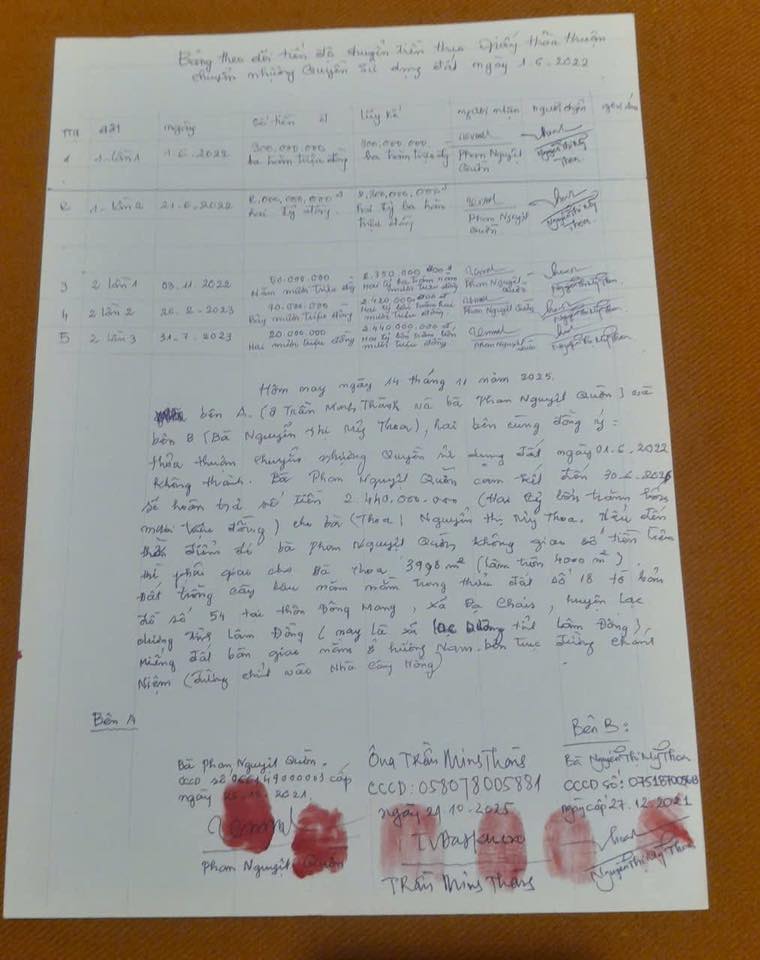 Bảng theo dõi tiến độ chuyển tiền theo Giấy thỏa thuận
chuyển nhượng Quyền sử dụng đất ngày 1.6.2022
TT đợt ngày số tiền đ lũy kế người nhận người chuyển
1 1-lần 1 1.6.2022 300.000.000 300.000.000
ba trăm triệu đồng ba trăm triệu đg Phan Nguyệt Quân Nguyễn Thị Mỹ Thoa
2 1-lần 2 21.6.2022 2.000.000.000đ 2.300.000.000đ
hai tỷ đồng. hai tỷ ba trăm triệu đồng Phan Nguyệt Quân Nguyễn Thị Mỹ Thoa
3 2 lần 1 03.11.2022 50.000.000 2.350.000.000đ
Năm mươi triệu đg Hai tỷ ba trăm năm mươi triệu đồng Phan Nguyệt Quân Nguyễn Thị Mỹ Thoa
4 2 lần 2 2023 70.000.000 2.420.000.000đ
Bảy mươi triệu đồng Hai tỷ bốn trăm hai mươi triệu đồng Phan Nguyệt Quân Nguyễn Thị Mỹ Thoa
5 2 lần 3 31.7.2023 20.000.000 2.440.000.000đ
Hai mươi triệu đồng Hai tỷ bốn trăm bốn mươi triệu đồng. Phan Nguyệt Quân Nguyễn Thị Mỹ Thoa
Hôm nay ngày 14 tháng 11 năm 2025.
bên A. (ô Trần Minh Thành và bà Phan Nguyệt Quân) và
bên B (Bà Nguyễn Thị Mỹ Thoa), hai bên cùng đồng ý:
thỏa thuận chuyển nhượng Quyền sử dụng đất ngày 01.6.2022
không thành. Bà Phan Nguyệt Quân cam kết đến 30.6.2026
sẽ hoàn trả số tiền 2.440.000.000 (Hai tỷ bốn trăm bốn
mươi triệu đồng) cho bà (Thoa) Nguyễn Thị Mỹ Thoa. Nếu đến
thời điểm đó bà Phan Nguyệt Quân không giao số tiền trên
thì phải giao cho Bà Thoa 3998 m² (làm tròn 4000 m²).
Đất trồng cây lâu năm nằm trong thửa đất số 18 tờ bản
đồ số 54 tại thôn Đông Mang, xã Đạ Chais, huyện Lạc
dương tỉnh Lâm Đồng (nay là xã Lạc Dương tỉnh Lâm Đồng)
Miếng đất bàn giao nằm ở hướng Nam bên trục đường chánh
Niệm (đường chút vào Nhà Công Hồng)
Bên A
Bên B:
Bà Phan Nguyệt Quân.
CCCD số cấp
ngày 2021
Phan Nguyệt Quân
Ông Trần Minh Thành
CCCD: 058078005881
ngày 21.10.2025
Trần Minh Thành
Bà Nguyễn Thị Mỹ Thoa
CCCD số:
ngày cấp 27.12.2021
Nguyễn Thị Mỹ Thoa